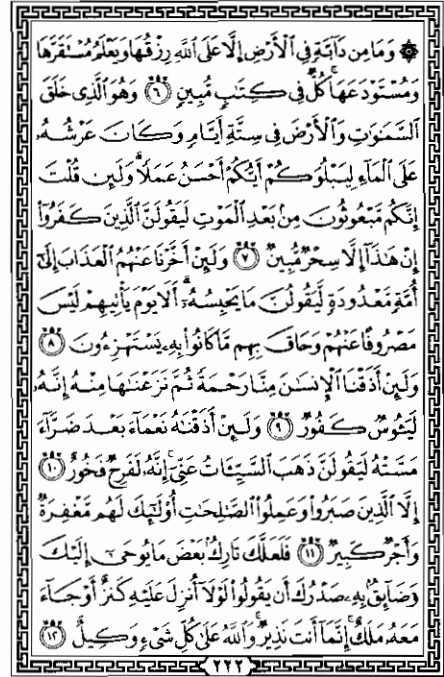 ۞ وَمَا مِن دَآبَّةٍ فِي ٱلْأَرْضِ إِلَّا عَلَى ٱللَّهِ رِزْقُهَا وَيَعْلَمُ مُسْتَقَرَّهَا
وَمُسْتَوْدَعَهَا ۚ كُلٌّ فِي كِتَٰبٍ مُّبِينٍ ٦ وَهُوَ ٱلَّذِي خَلَقَ
ٱلسَّمَٰوَٰتِ وَٱلْأَرْضَ فِي سِتَّةِ أَيَّامٍ وَكَانَ عَرْشُهُۥ
عَلَى ٱلْمَآءِ لِيَبْلُوَكُمْ أَيُّكُمْ أَحْسَنُ عَمَلًا ۗ وَلَئِن قُلْتَ
إِنَّكُم مَّبْعُوثُونَ مِنۢ بَعْدِ ٱلْمَوْتِ لَيَقُولَنَّ ٱلَّذِينَ كَفَرُوٓا۟
إِنْ هَٰذَآ إِلَّا سِحْرٌ مُّبِينٌ ٧ وَلَئِنْ أَخَّرْنَا عَنْهُمُ ٱلْعَذَابَ إِلَىٰٓ
أُمَّةٍ مَّعْدُودَةٍ لَّيَقُولُنَّ مَا يَحْبِسُهُۥٓ ۗ أَلَا يَوْمَ يَأْتِيهِمْ لَيْسَ
مَصْرُوفًا عَنْهُمْ وَحَاقَ بِهِم مَّا كَانُوا۟ بِهِۦ يَسْتَهْزِءُونَ ٨
وَلَئِنْ أَذَقْنَا ٱلْإِنسَٰنَ مِنَّا رَحْمَةً ثُمَّ نَزَعْنَٰهَا مِنْهُ إِنَّهُۥ
لَيَـُٔوسٌ كَفُورٌ ٩ وَلَئِنْ أَذَقْنَٰهُ نَعْمَآءَ بَعْدَ ضَرَّآءَ
مَسَّتْهُ لَيَقُولَنَّ ذَهَبَ ٱلسَّيِّـَٔاتُ عَنِّيٓ ۚ إِنَّهُۥ لَفَرِحٌ فَخُورٌ ١٠
إِلَّا ٱلَّذِينَ صَبَرُوا۟ وَعَمِلُوا۟ ٱلصَّٰلِحَٰتِ أُو۟لَٰٓئِكَ لَهُم مَّغْفِرَةٌ
وَأَجْرٌ كَبِيرٌ ١١ فَلَعَلَّكَ تَارِكٌۢ بَعْضَ مَا يُوحَىٰٓ إِلَيْكَ
وَضَآئِقٌۢ بِهِۦ صَدْرُكَ أَن يَقُولُوا۟ لَوْلَآ أُنزِلَ عَلَيْهِ كَنزٌ أَوْ جَآءَ
مَعَهُۥ مَلَكٌ ۚ إِنَّمَآ أَنتَ نَذِيرٌ ۚ وَٱللَّهُ عَلَىٰ كُلِّ شَيْءٍ وَكِيلٌ ١٢
٢٢٢